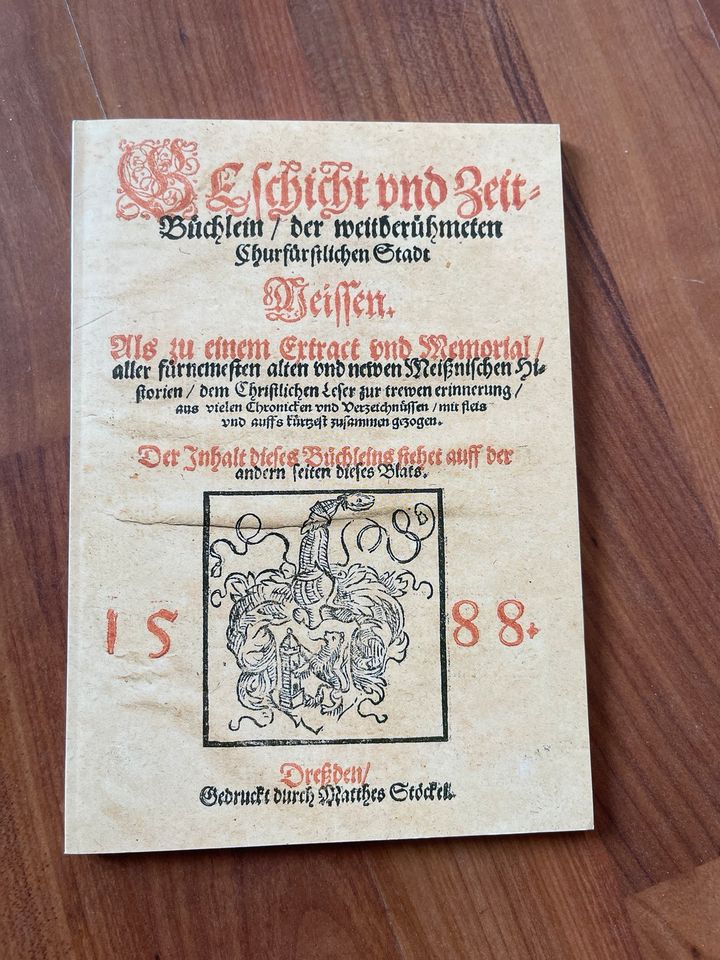 GEschicht vnd Zeit-
Büchlein / der weitberühmeten
Churfürstlichen Stadt
Meissen.
Als zu einem Extract vnd Memorial /
aller fürnemesten alten vnd newen Meißnischen Hi-
storien / dem Christlichen Leser zur trewen erinnerung /
aus vielen Chronicken vnd Verzeichnüssen / mit fleis
vnd auffs kürtzest zusammen gezogen.
Der Inhalt dieses Büchleins stehet auff der
andern seiten dieses Blats.
15 88.
Dreßden /
Gedruckt durch Matthes Stöckel.